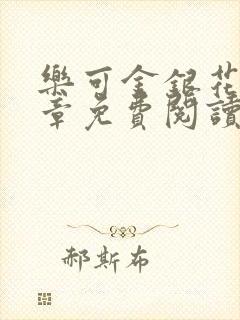 樂可金銀花
章免費閱讀
郝斯布